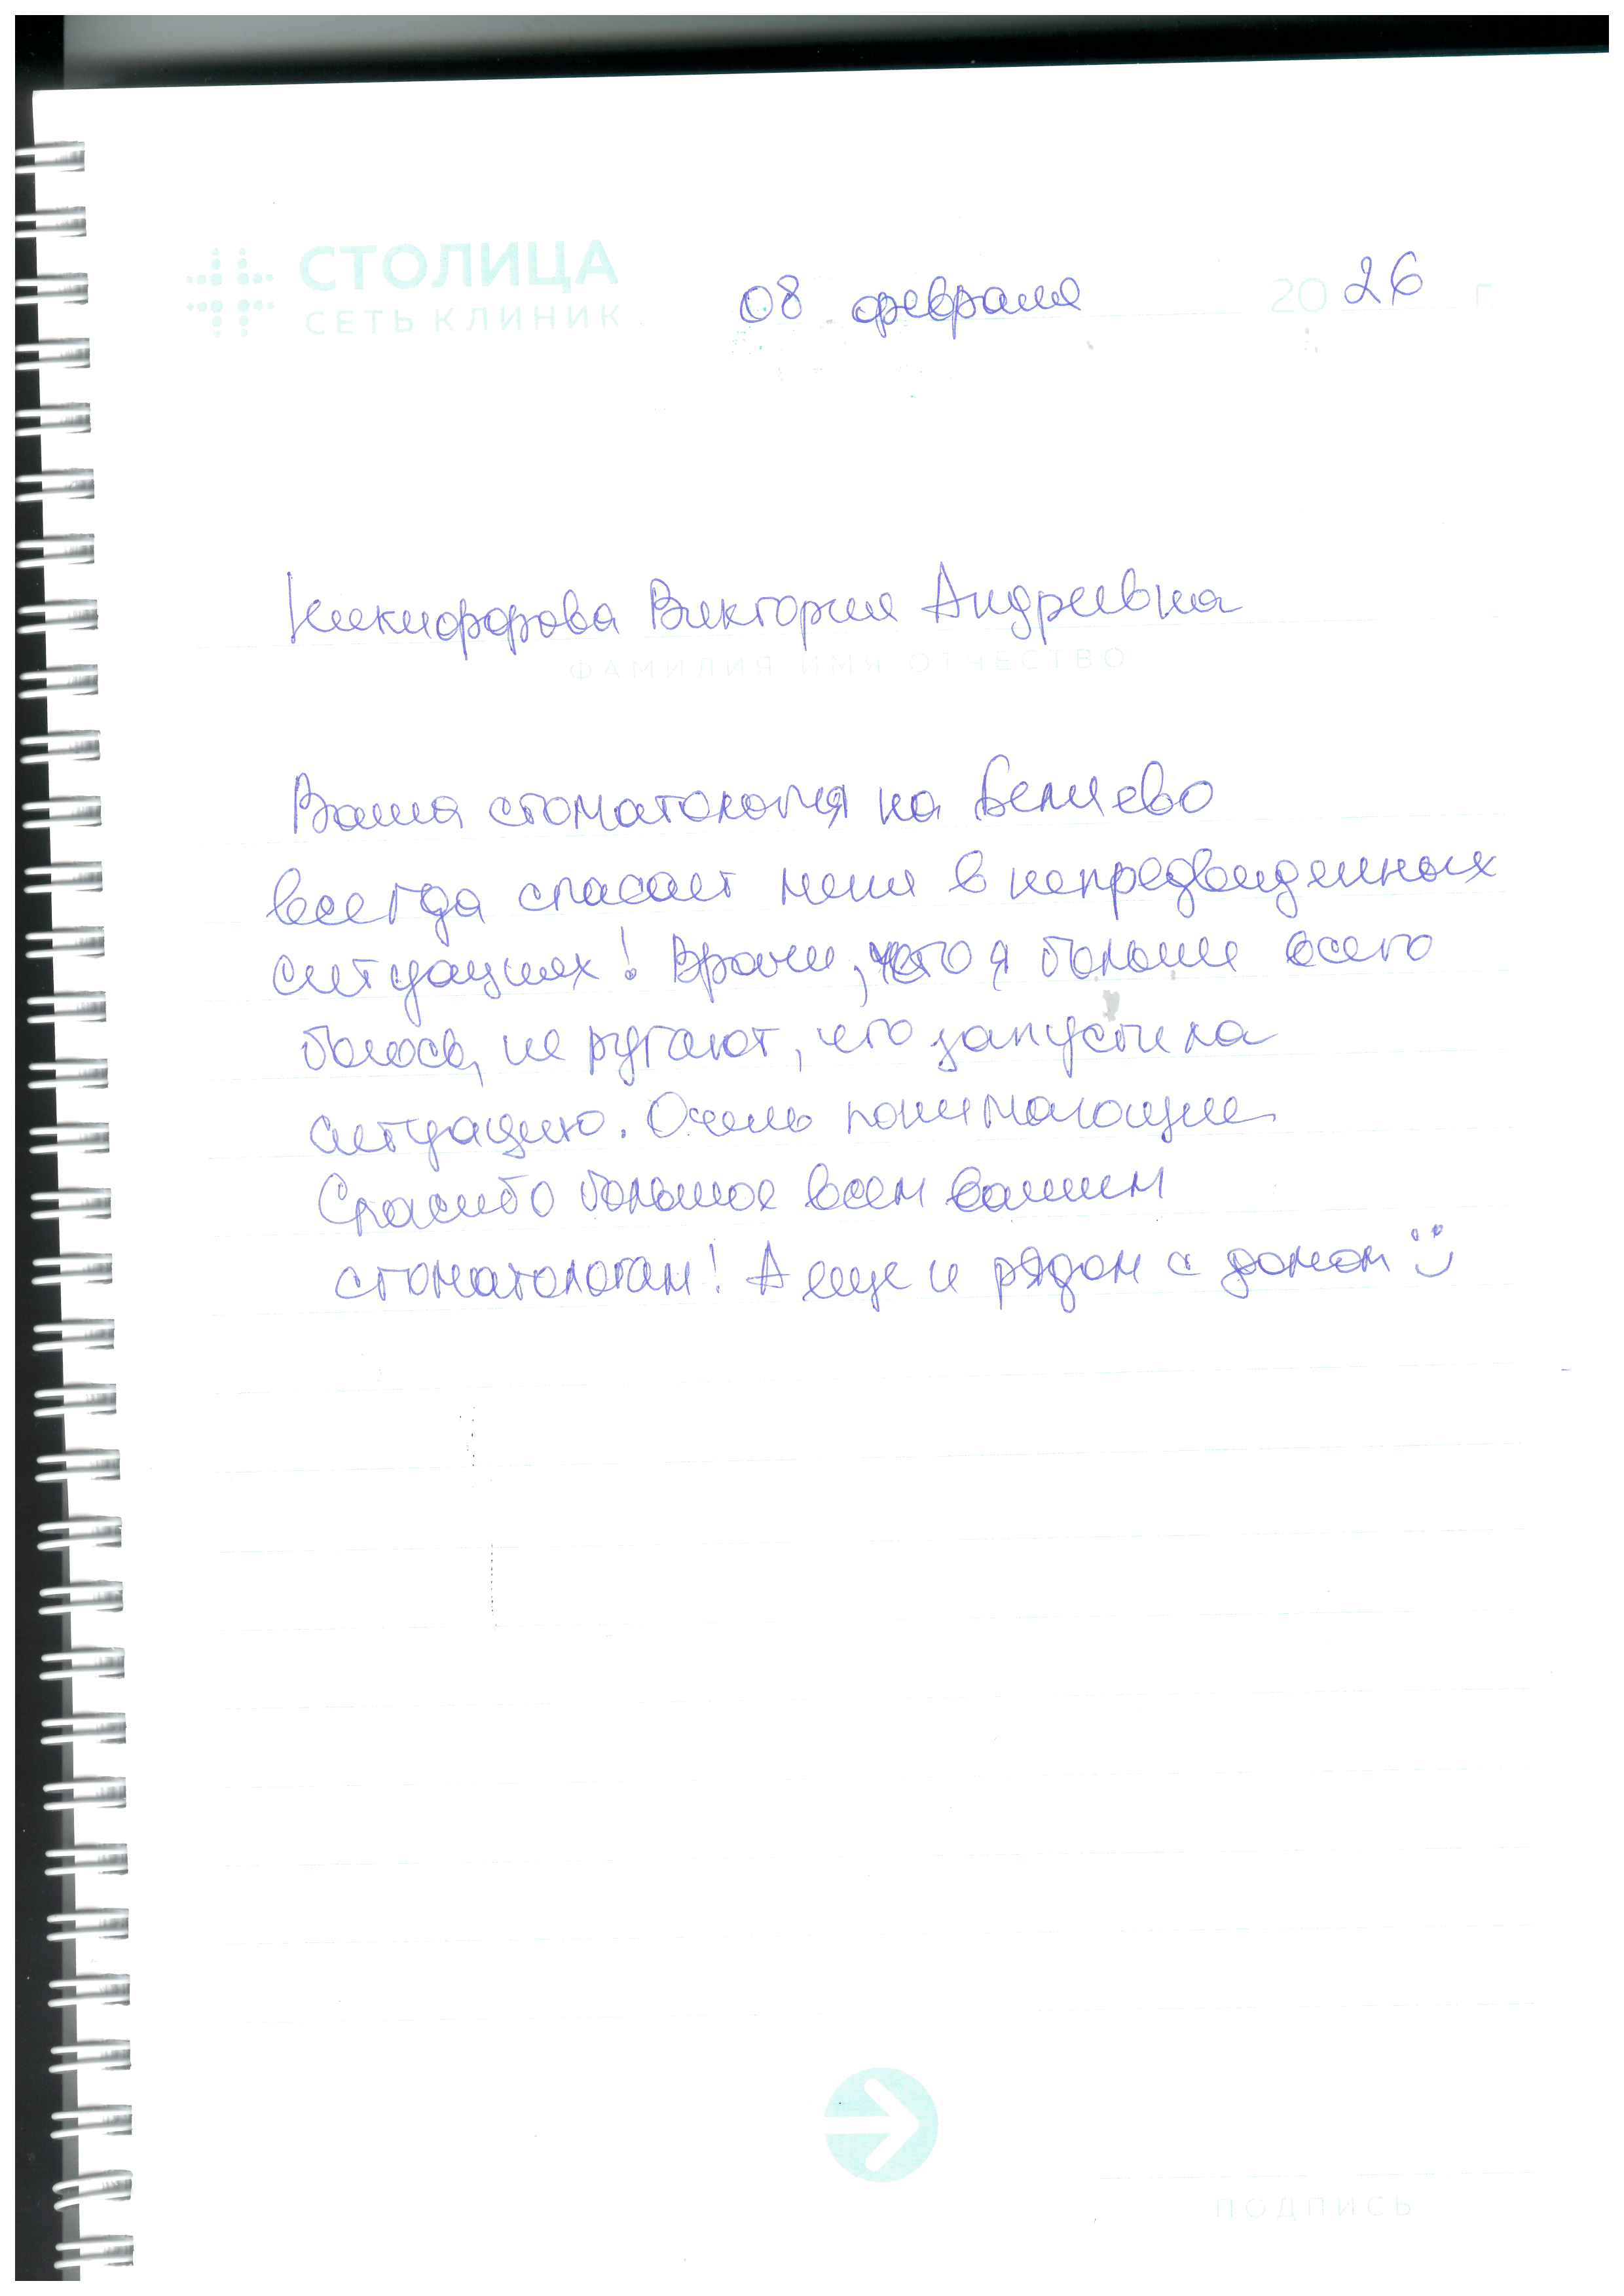 СТОЛИЦА
СЕТЬ КЛИНИК
08 февраля 2026 г.
Никифорова Виктория Андреевна
ФАМИЛИЯ ИМЯ ОТЧЕСТВО
Ваша стоматология на Беляево
всегда спасает меня в непредвиденных
ситуациях! Врачи, чего я больше всего
боюсь, не ругают, что запустила
ситуацию. Очень понимающие
Спасибо большое всем вашим
стоматологам! А еще и рядом с домом
ПОДПИСЬ